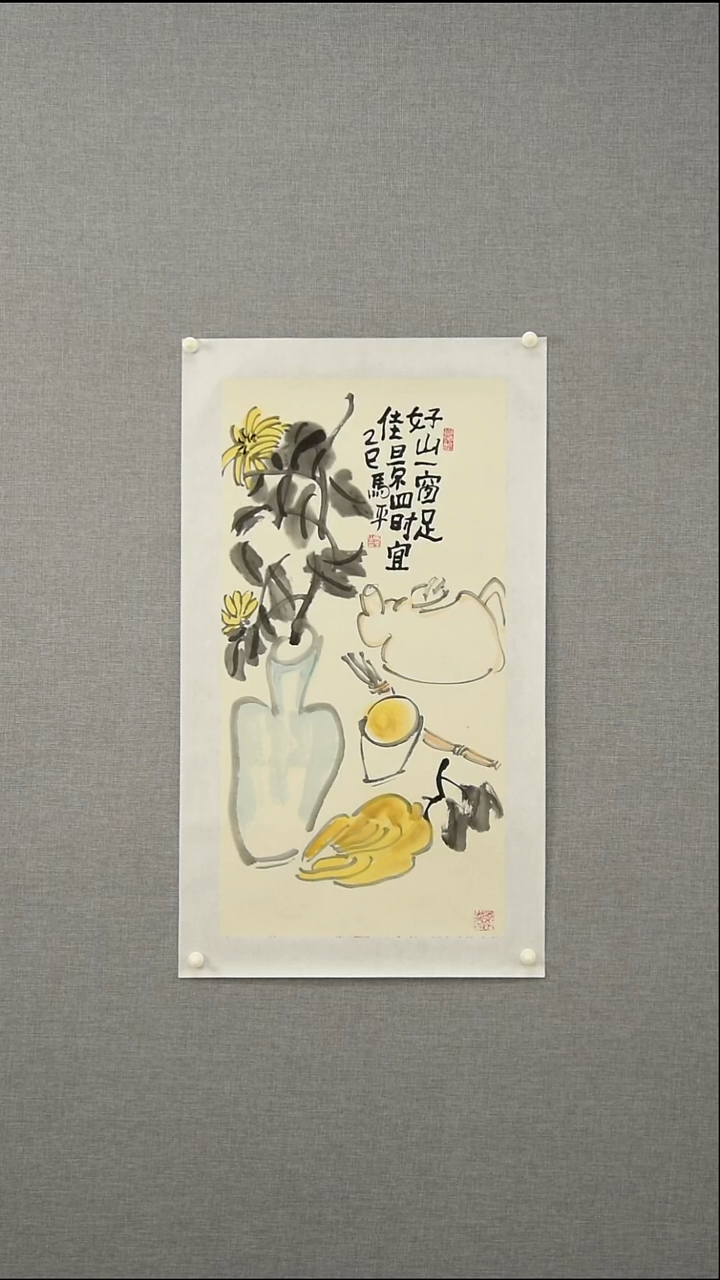 好山一窗足
佳景四时宜
乙巳馬平